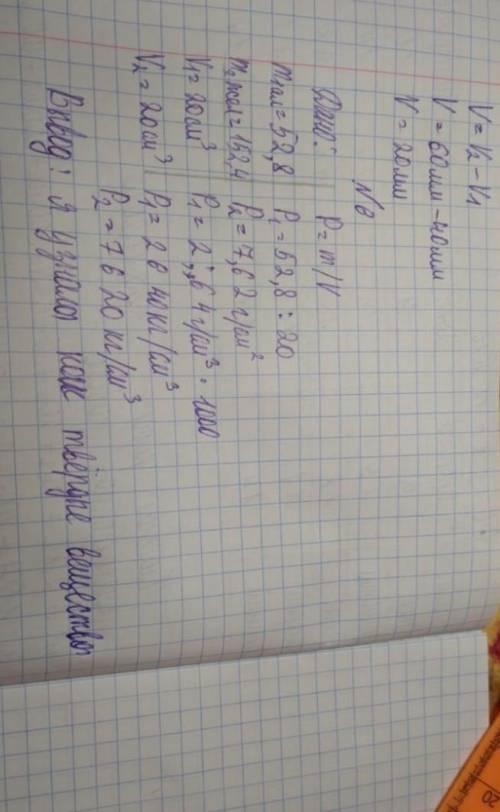 V = V₂ - V₁
V = 60мл - 40мл
V = 20мл
№6
Дано:
m₁ал = 52,8
m₂жел = 152,4
V₁ = 20см³
V₂ = 20см³
P = m/V
P₁ = 52,8 : 20
P₂ = 7,62 г/см²
P₁ = 2,64 г/см³ · 1000
P₁ = 2640 кг/см³
P₂ = 7620 кг/см³
Вывод: я узнала как твёрдые вещества